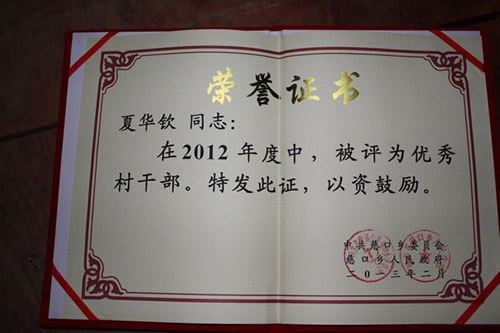 荣誉证书
夏华钦 同志：
在2012年度中，被评为优秀
村干部。特发此证，以资鼓励。
中共慈口乡委员会
慈口乡人民政府
二〇一三年二月